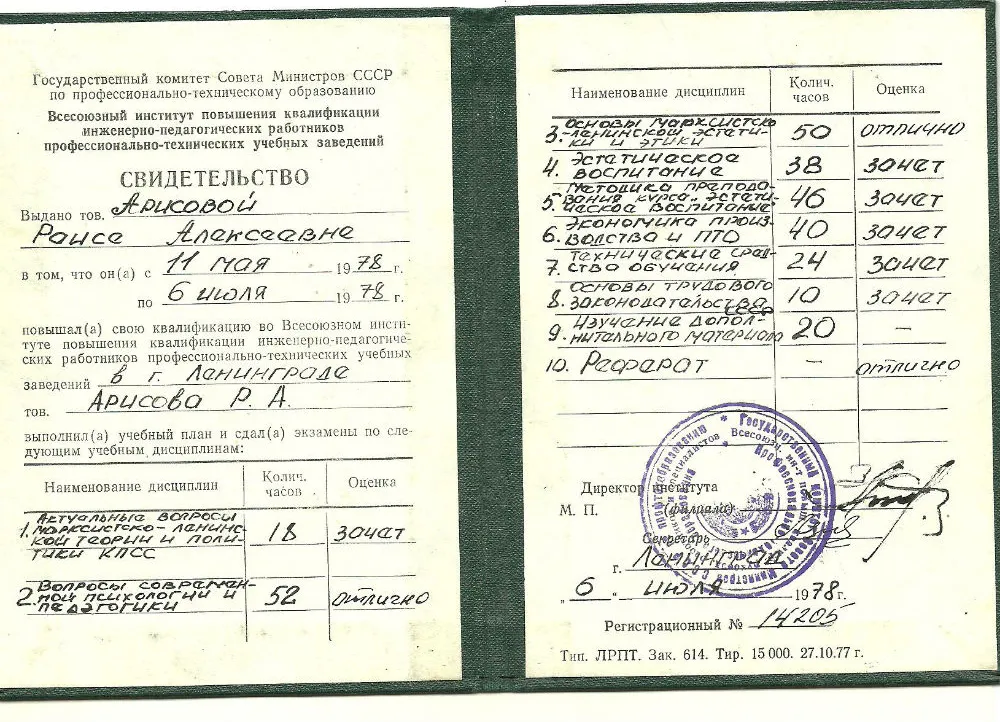 Государственный комитет Совета Министров СССР
по профессионально-техническому образованию
Всесоюзный институт повышения квалификации
инженерно-педагогических работников
профессионально-технических учебных заведений
СВИДЕТЕЛЬСТВО
Выдано тов. Арисовой
Раисе Алексеевне
в том, что он(а) с 11 мая 1978 г.
по 6 июля 1978 г.
повышал(а) свою квалификацию во Всесоюзном инсти-
туте повышения квалификации инженерно-педагогиче-
ских работников профессионально-технических учебных
заведений в г. Ленинграде
тов. Арисова Р. А.
выполнил(а) учебный план и сдал(а) экзамены по сле-
дующим учебным дисциплинам:
Наименование дисциплин Колич. часов Оценка
1. Актуальные вопросы 18 зачет
марксистско-ленинс-
кой теории и поли-
тики КПСС
2. Вопросы современ- 52 отлично
ной психологии и
педагогики
Наименование дисциплин Колич. часов Оценка
3. Основы марксистско- 50 отлично
-ленинской эстети-
ки и этики
4. Эстетическое 38 зачет
воспитание
5. Методика препода- 46 зачет
вания курса „Эстети-
ческое воспитание"
6. Экономика произ- 40 зачет
водства и ПТО
7. Технические сред- 24 зачет
ства обучения
8. Основы трудового 10 зачет
законодательства СССР
9. Изучение допол- 20 –
нительного материала
10. Реферат – отлично
Директор института
М. П. (филиала)
Секретарь
г. Ленинград
„6" июля 1978 г.
Регистрационный № 14205
Тип. ЛРПТ. Зак. 614. Тир. 15 000. 27.10.77 г.